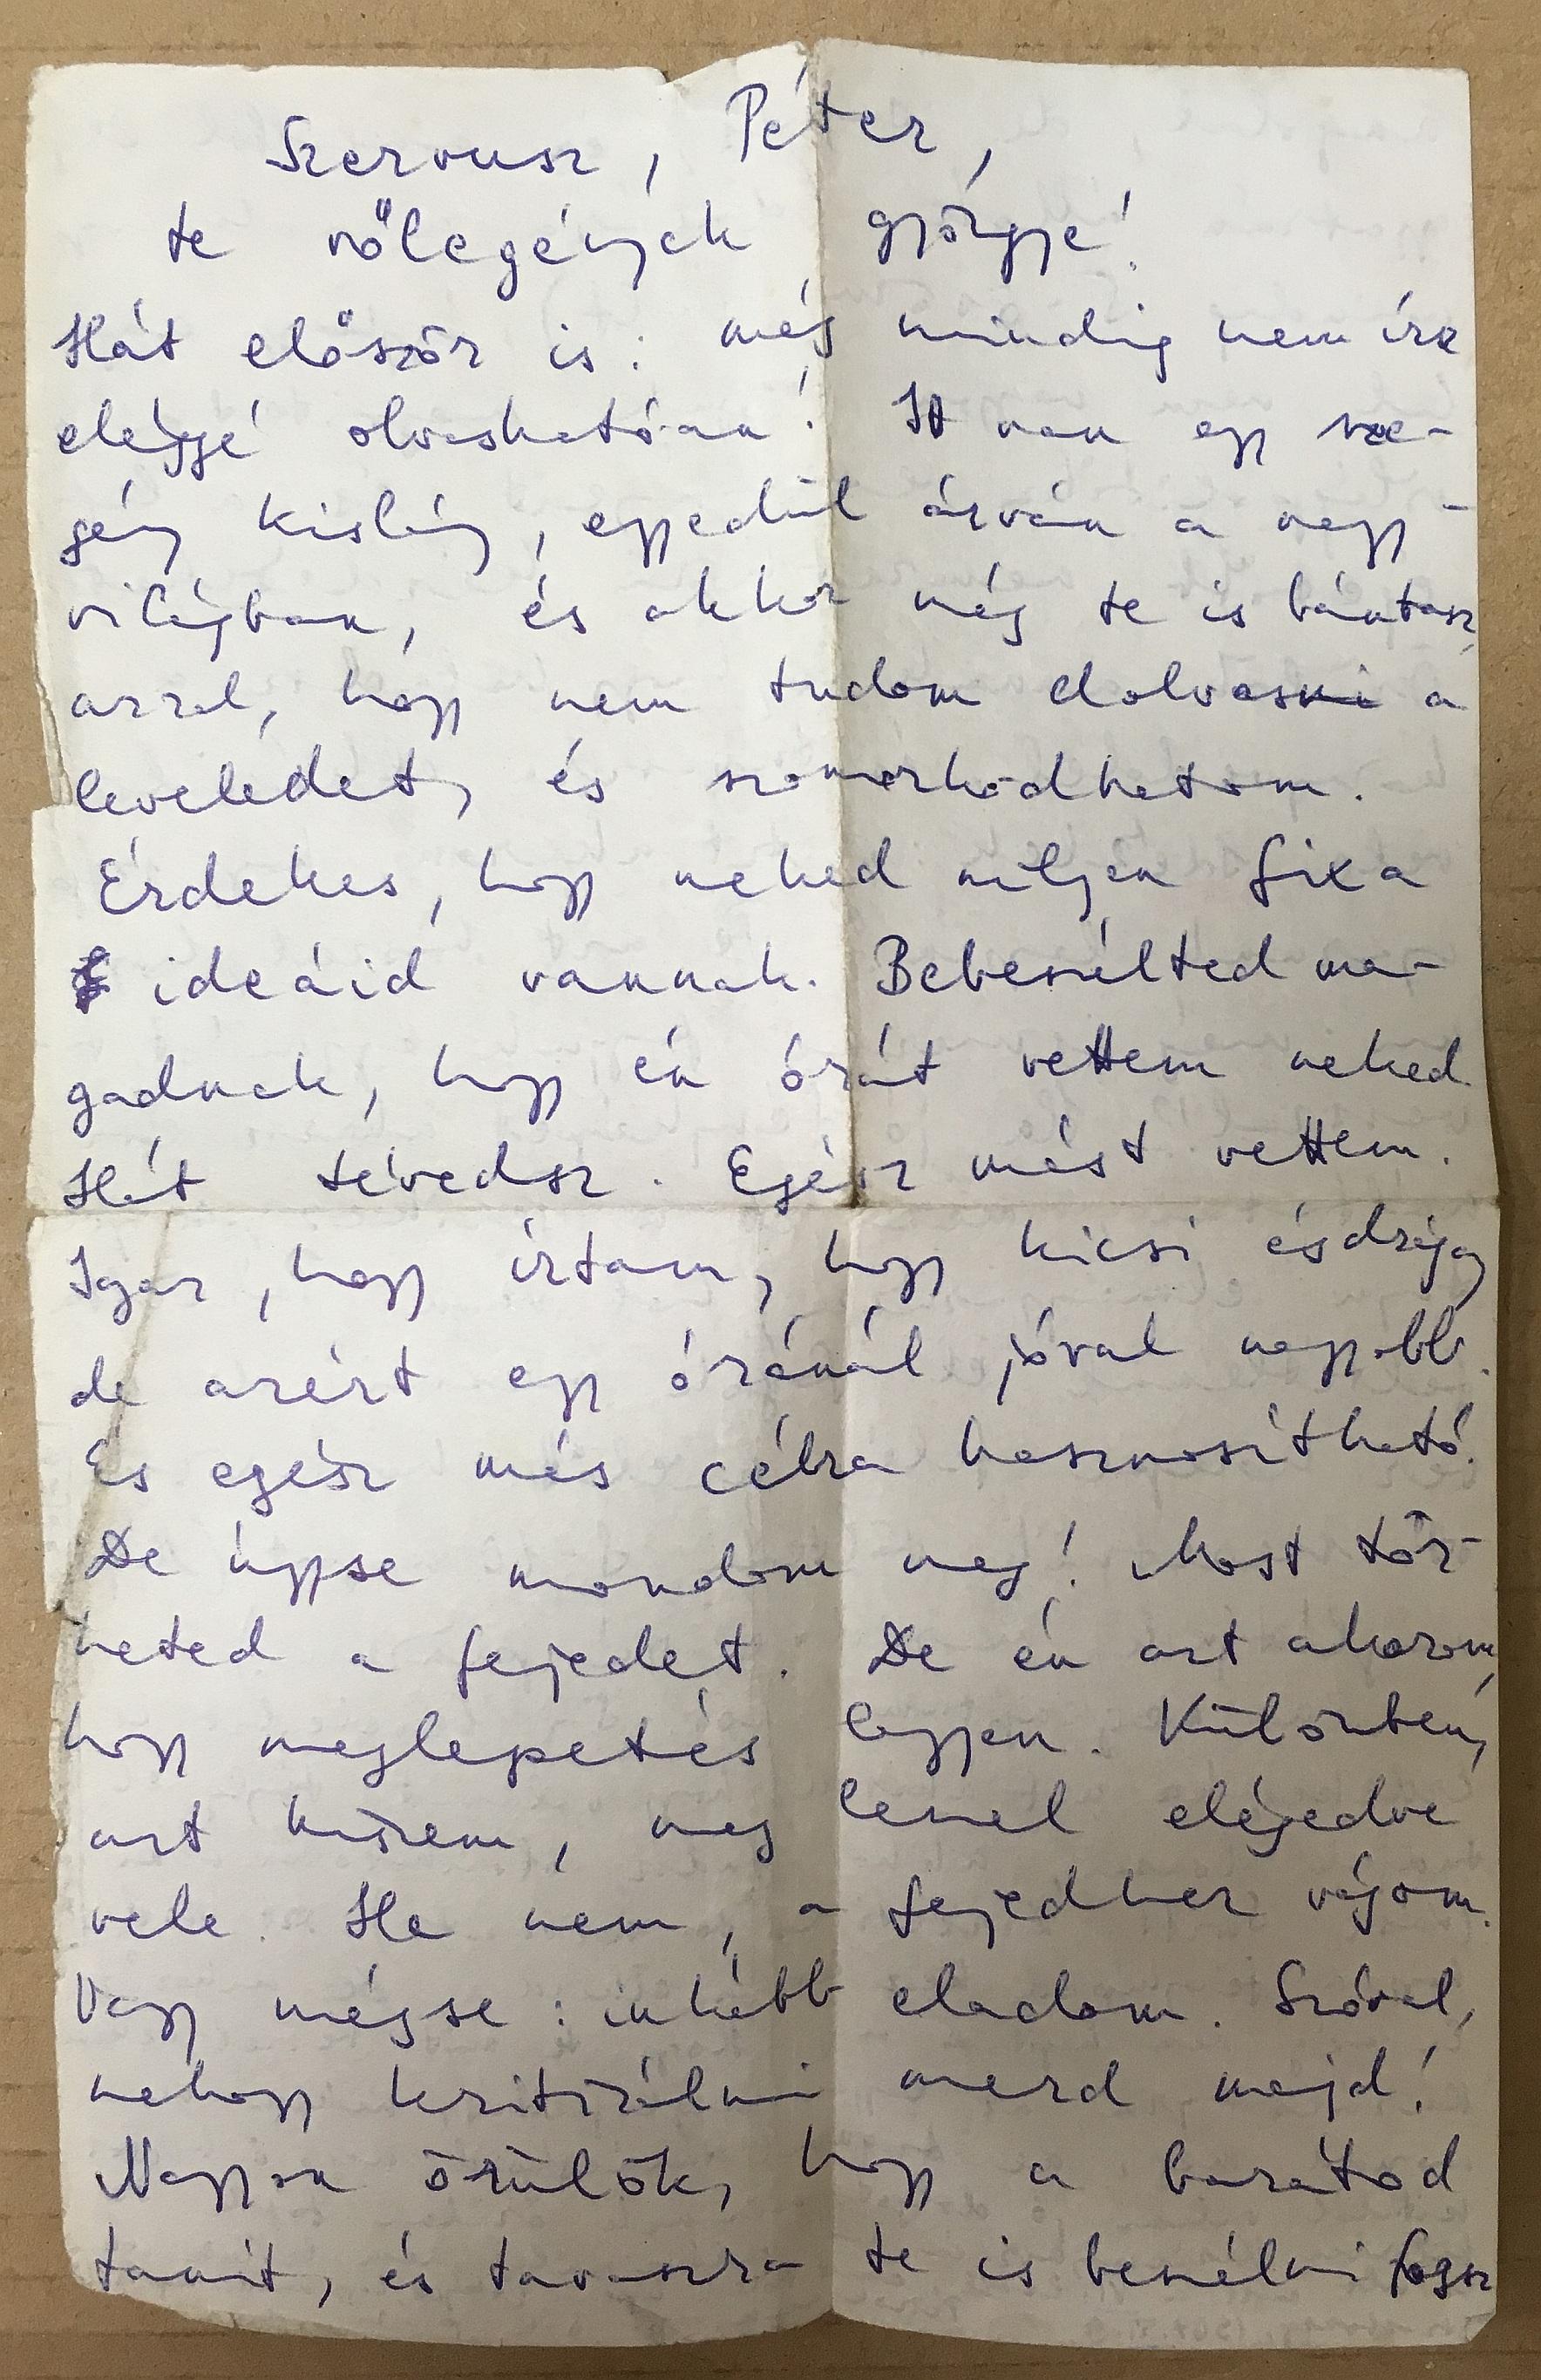 Szervusz, Péter,
te vőlegények gyöngye!
Hát először is: még mindig nem írsz
eléggé olvashatóan! Itt van egy sze-
gény kislány, egyedül árván a nagy-
világban, és akkor még te is bántasz
azzal, hogy nem tudom elolvasni a
leveledet, és szomorkodhatom.
Érdekes, hogy neked milyen fixa
ideáid vannak. Bebeszélted ma-
gadnak, hogy én órát vettem neked.
Hát tévedsz. Egész mást vettem.
Igaz, hogy írtam, hogy kicsi és drága,
de azért egy óránál jóval nagyobb.
És egész más célra hasznosítható.
De úgyse mondom meg! Most tör-
heted a fejedet. De én azt akarom,
hogy meglepetés legyen. Különben,
azt hiszem, meg leszel elégedve
vele. Ha nem, a fejedhez vágom.
Vagy mégse: inkább eladom. Szóval,
nehogy kritizálni merd majd!
Nagyon örülök, hogy a barátod
tanít, és tavaszra te is beszélni fogsz